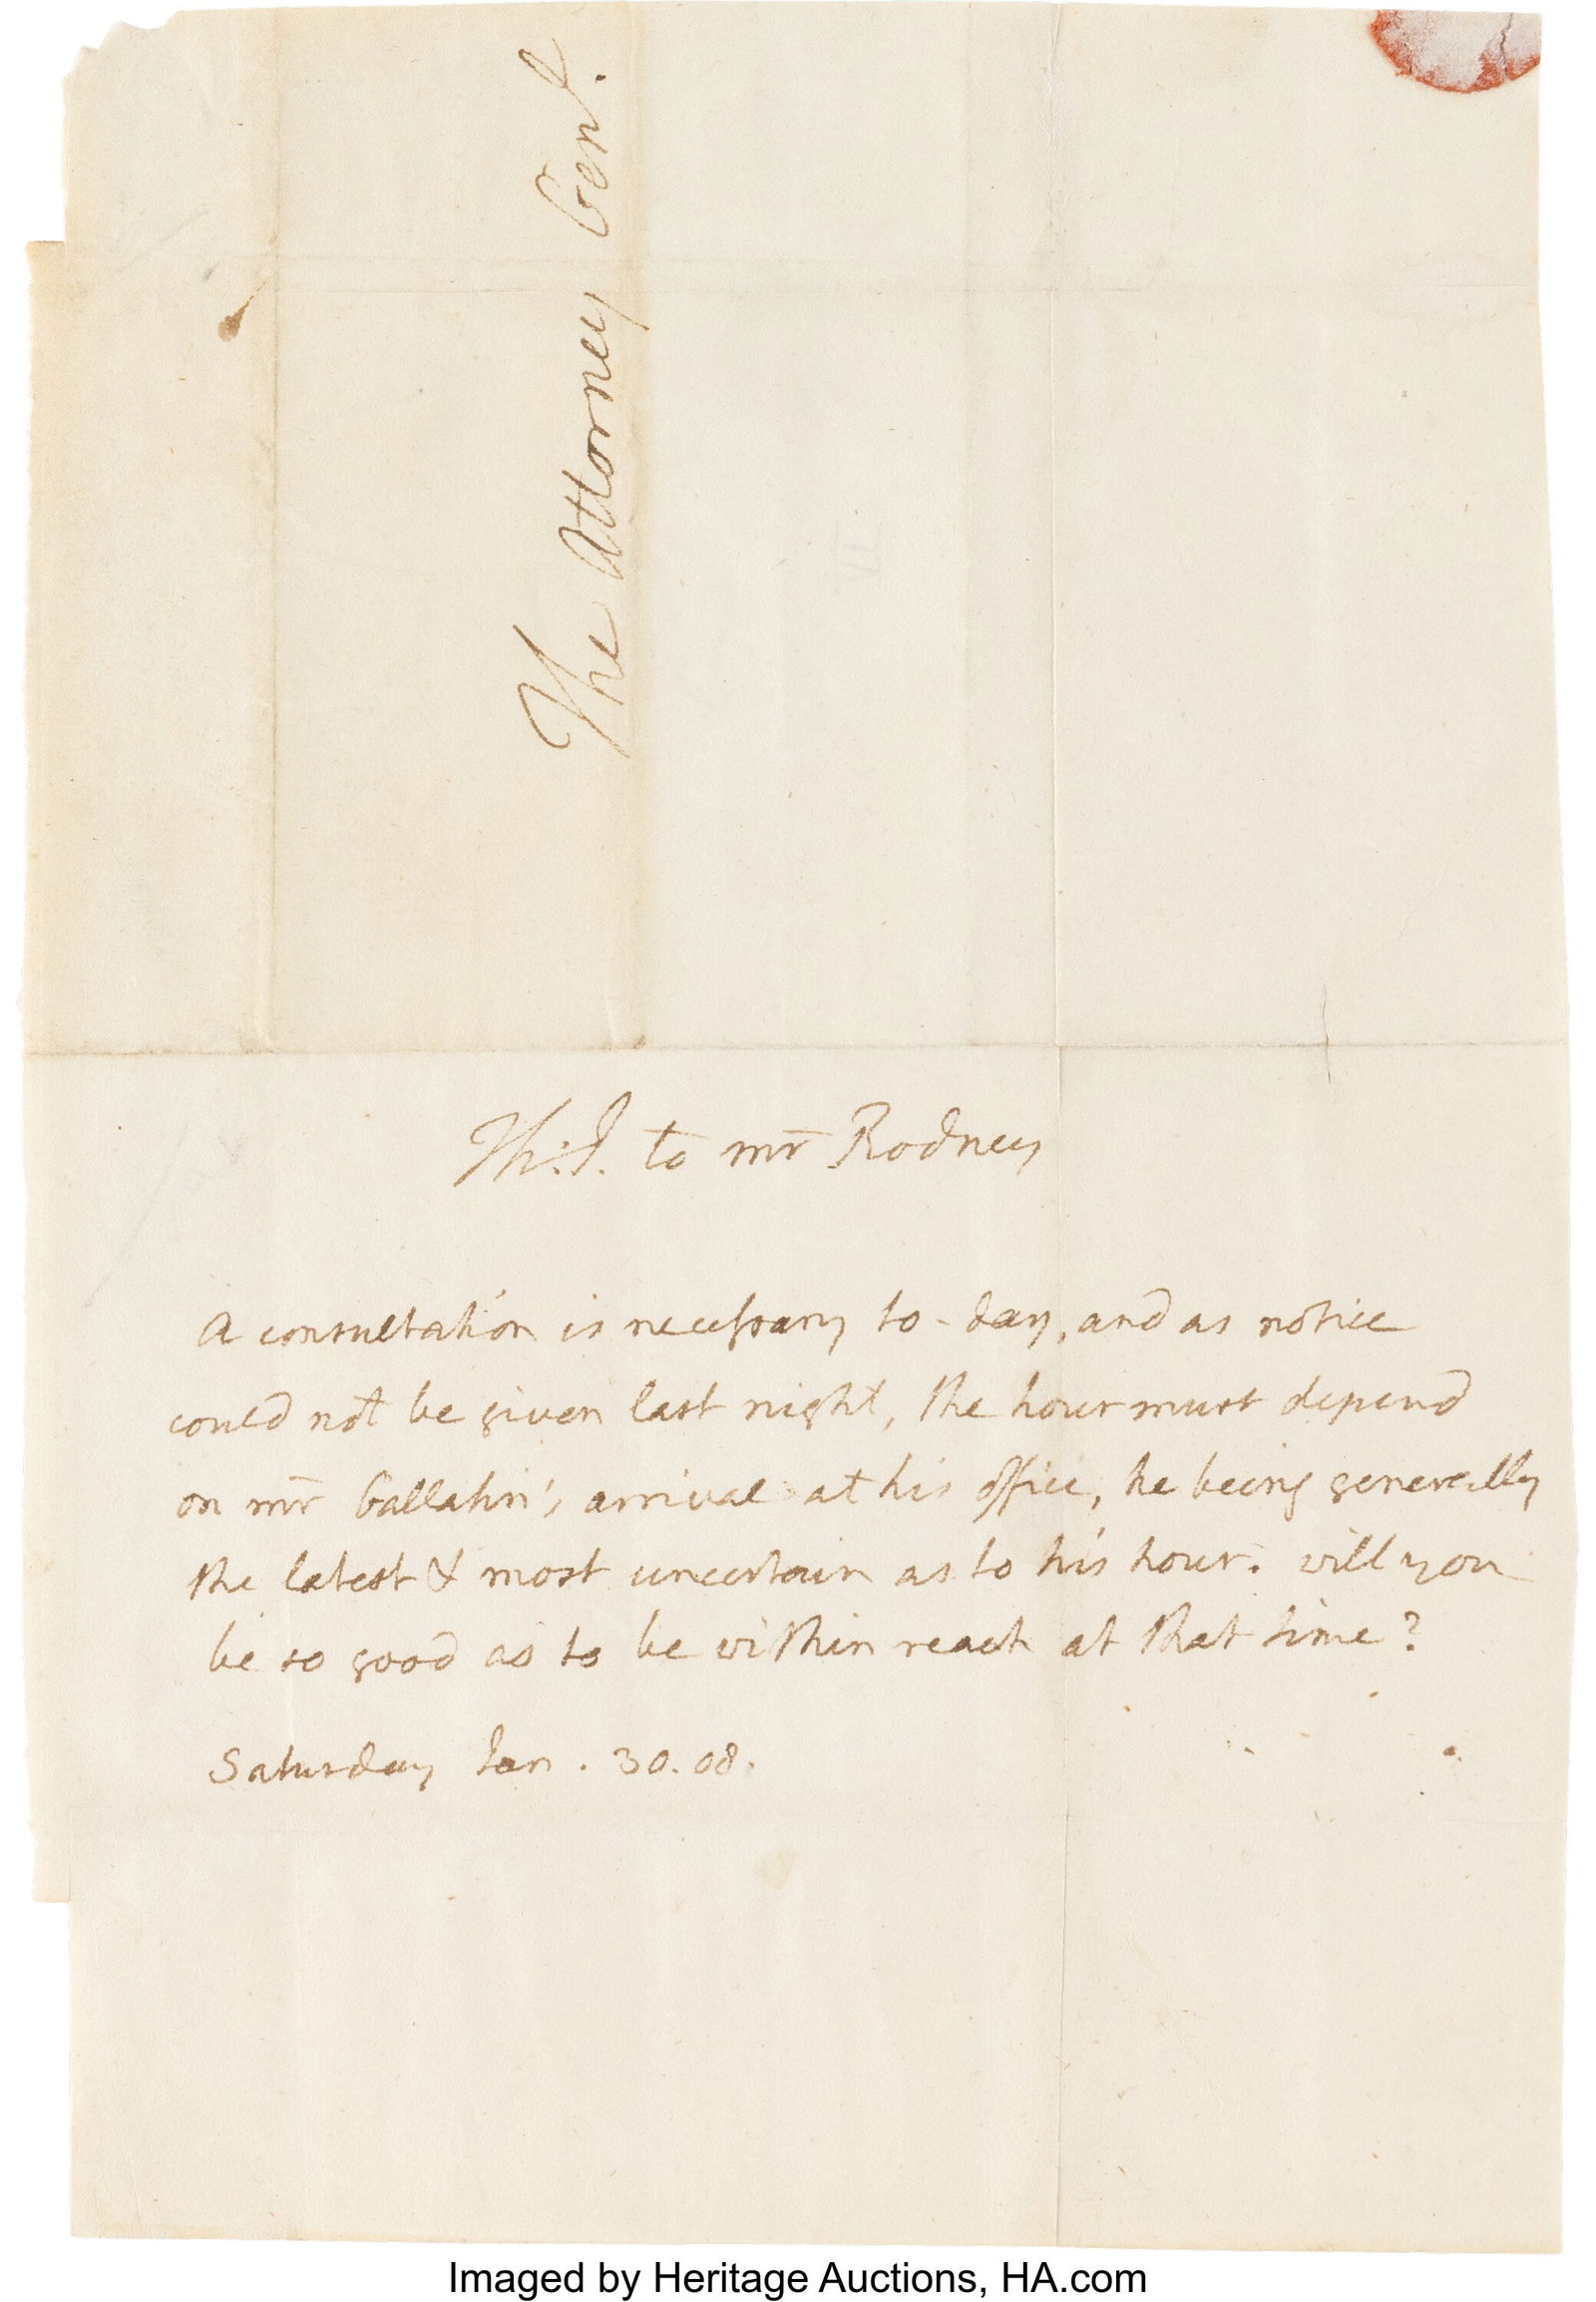 The Attorney Genl.
Th:J. to mr Rodney
A consultation is necessary to-day, and as notice
could not be given last night, the hour must depend
on mr Gallatin's arrival at his office, he being generally
the latest & most uncertain as to his hour. will you
be so good as to be within reach at that time?
Saturday Jan. 30. 08.
Imaged by Heritage Auctions, HA.com